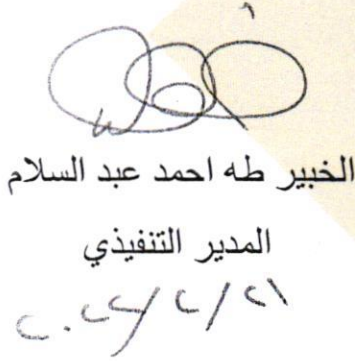 الخبير طه احمد عبد السلام
المدير التنفيذي
٢٠٢٢/٢/٢١